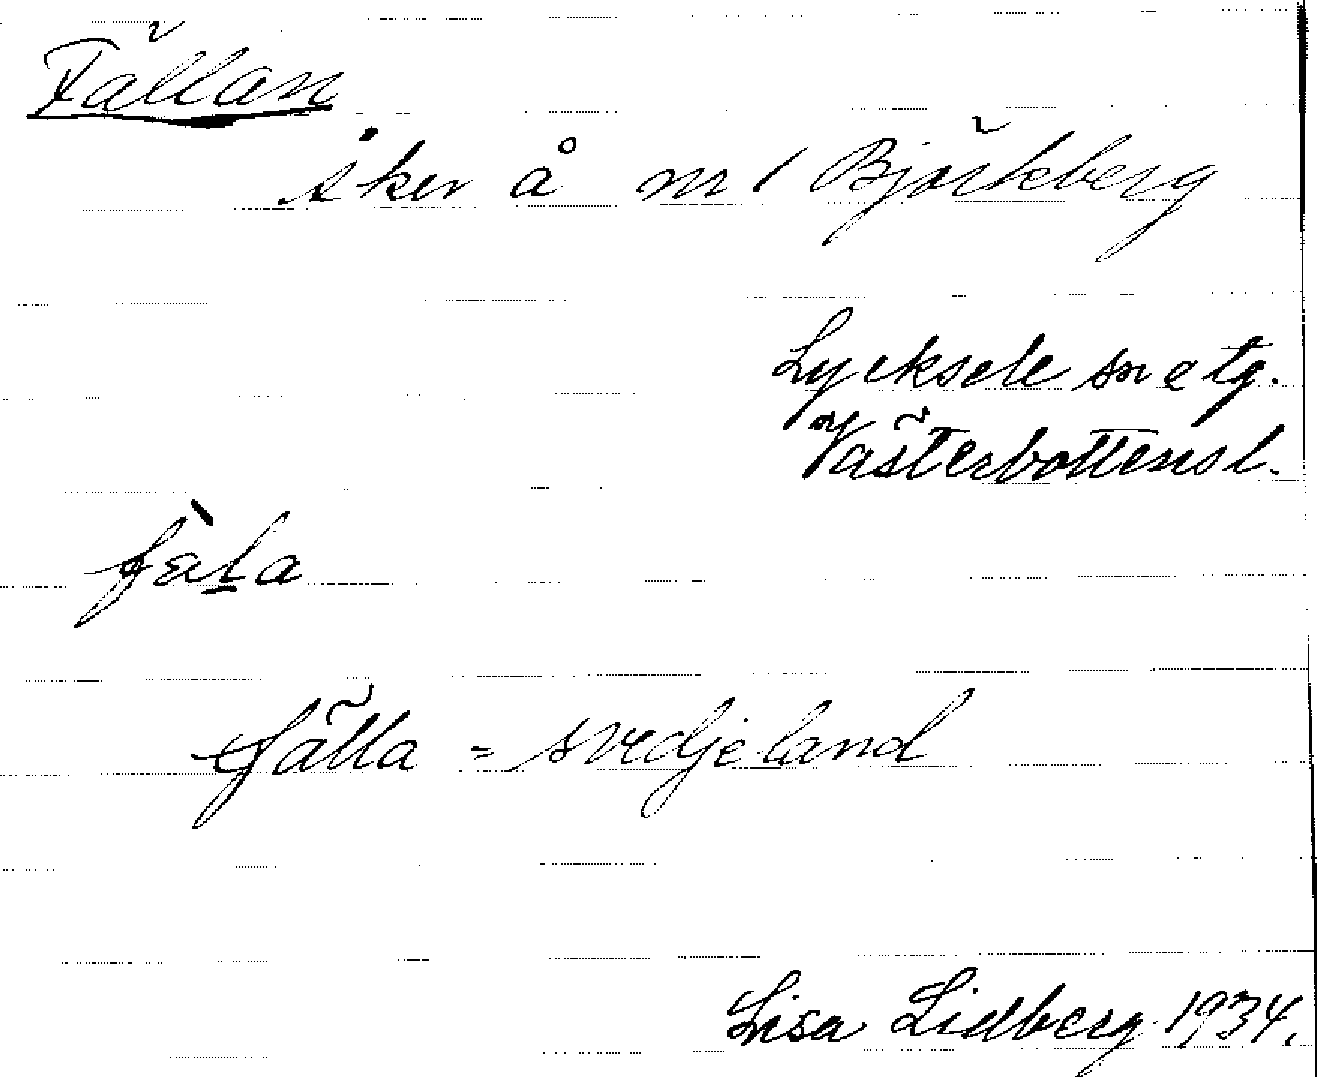 Fällan
åker å nr 1 Björkberg
Lycksele sn o tg.
Västerbottensl.
fàla
fälla = svedjeland
Lisa Lidberg 1934.